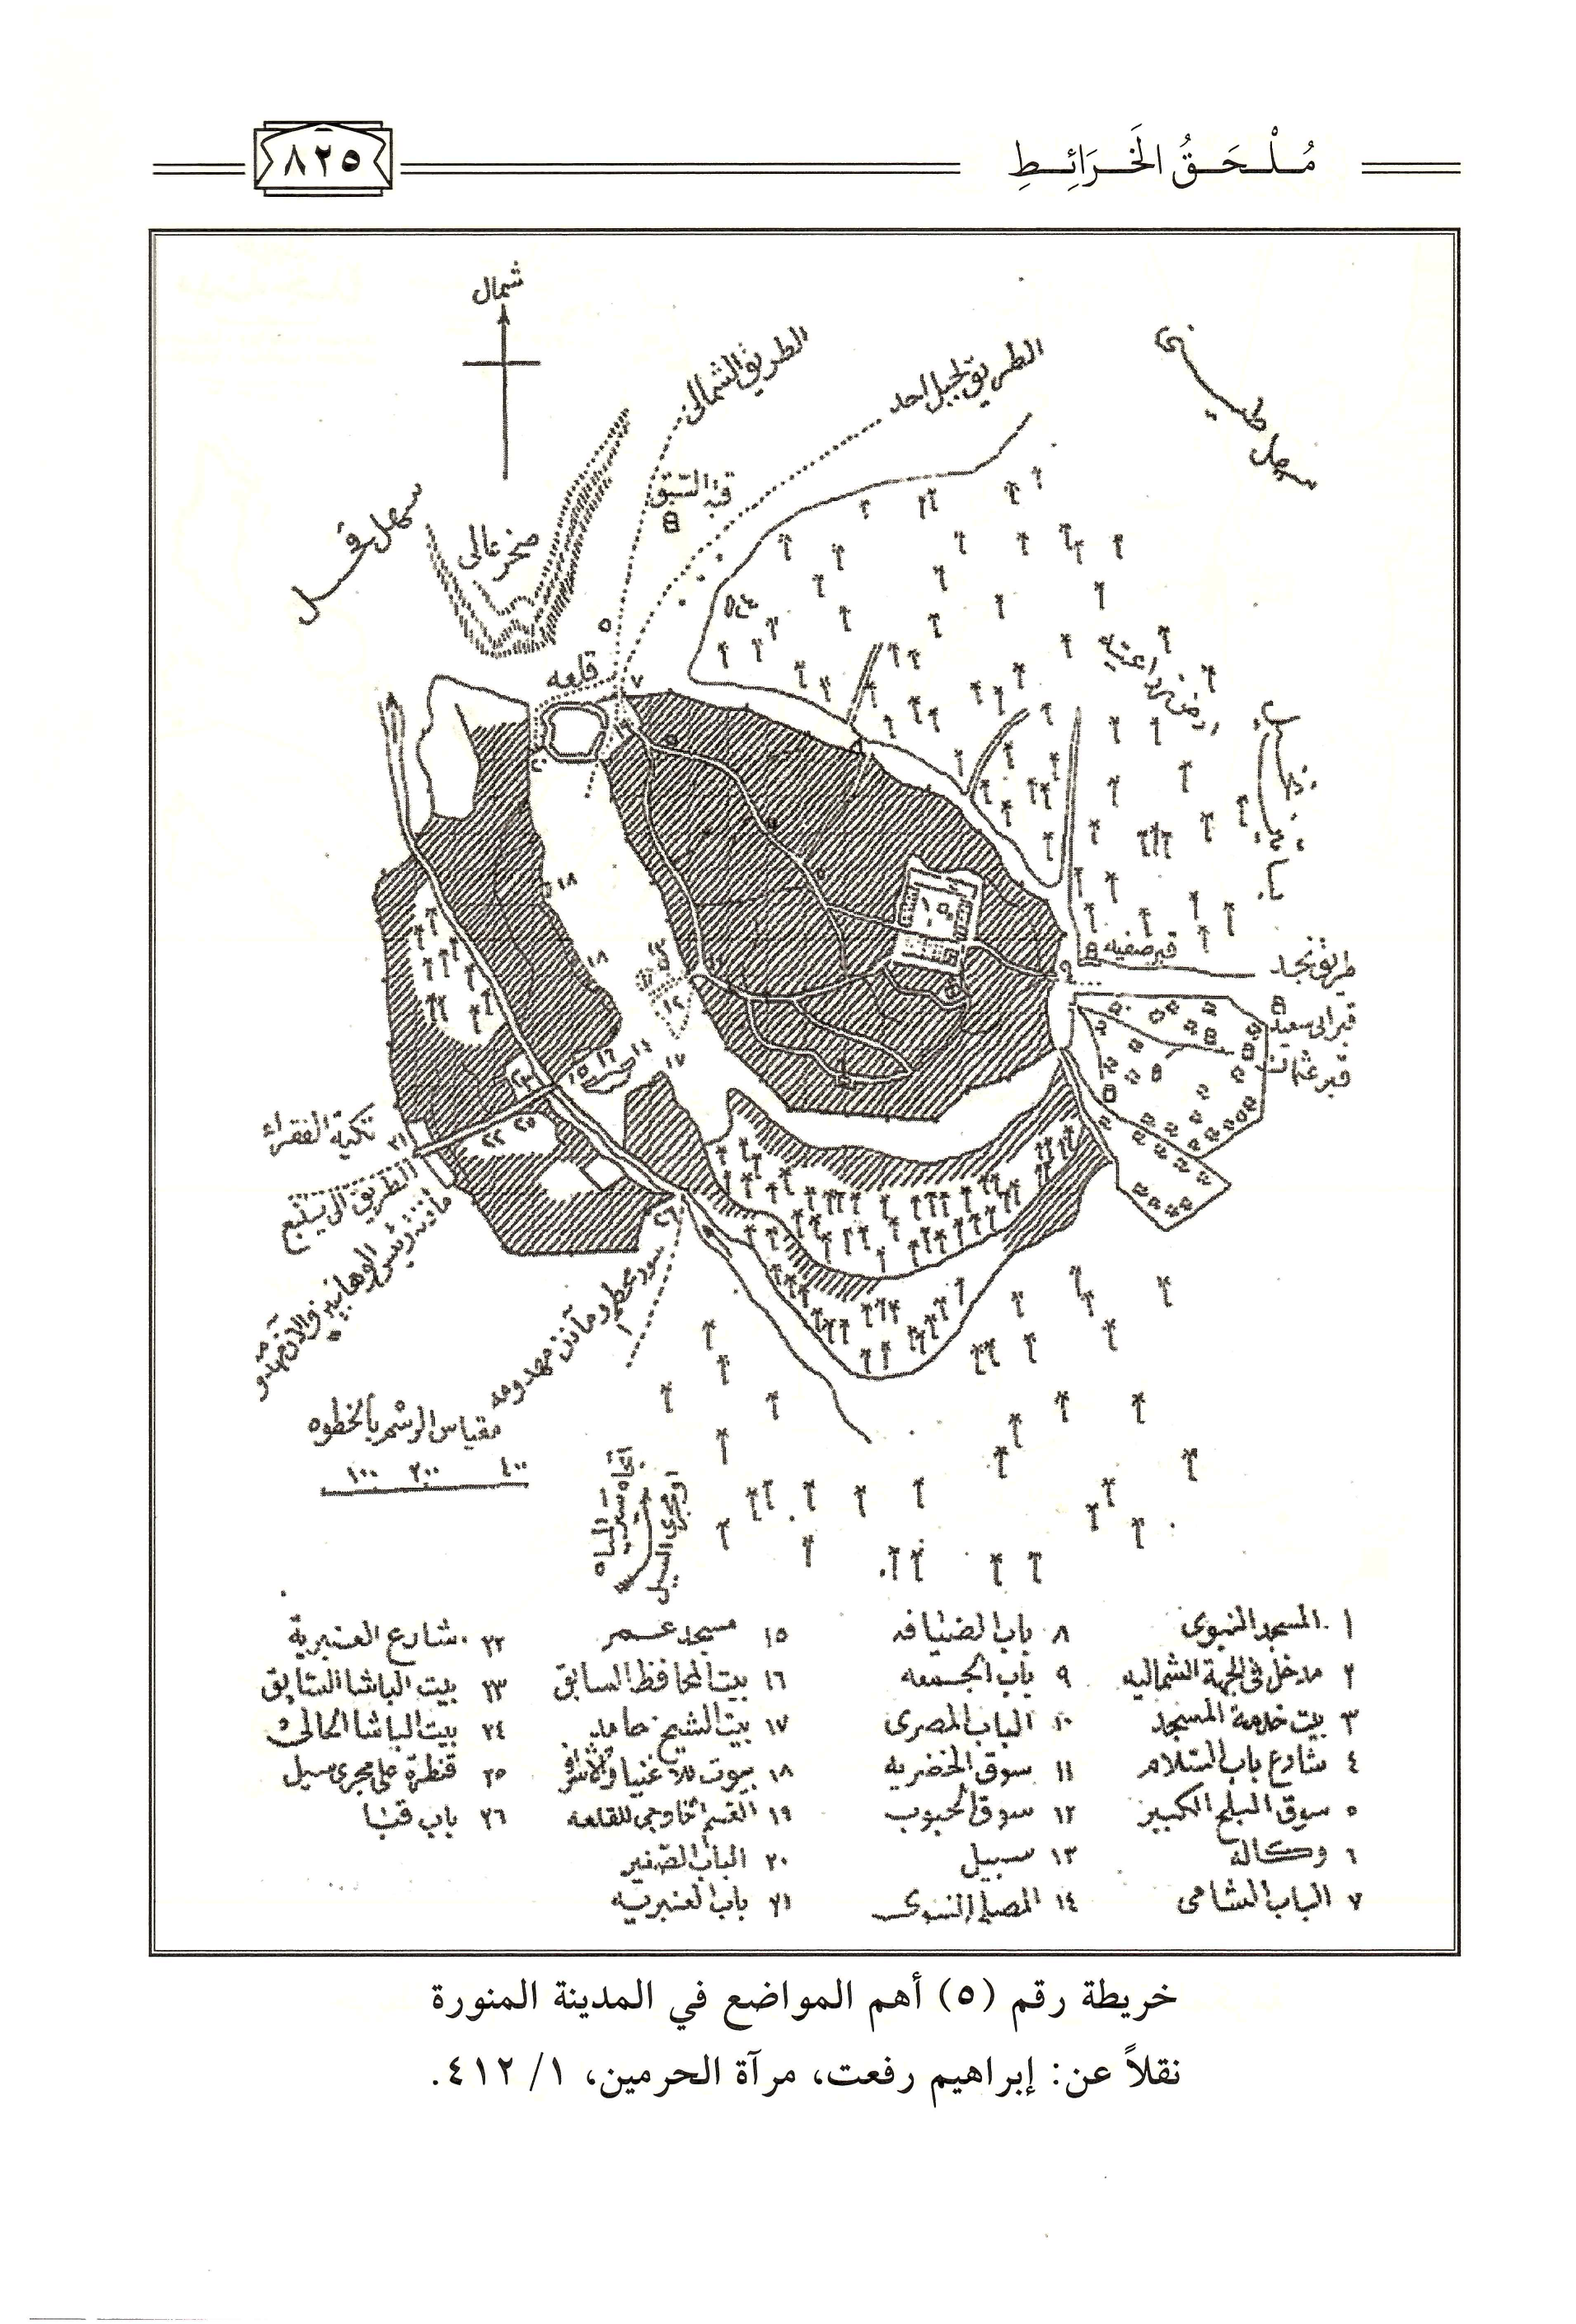 مُلْحَقُ الْخَرَائِطِ
٨٢٥
شمال
الطريق الشمالى
الطريق لجبل احد
سهل طينى
قبة السبق
صخر عالى
سهل
قلعه
٧
١٨
١٨
١٢
١٧
١
٩
قبر صفيه
طريق نجد
قبر ابى سعيد
قبر عثمان
١٥
١٦
١٤
٢٣
٢٢
٢٥
٢١
٢٦
تكية الفقراء
الطريق الى ينبع
سور محطم ومآذن مهدومه
مقياس الرسم بالخطوه
١٠٠ ٢٠٠ ٤٠٠
اتجاه سير المياه
او مجرى السيل
١ المسجد النبوى
٢ مدخل فى الجهة الشماليه
٣ بيت خدمة المسجد
٤ شارع باب السلام
٥ سوق البلح الكبير
٦ وكالة
٧ الباب الشامى
٨ باب الضيافه
٩ باب الجمعه
١٠ الباب المصرى
١١ سوق الخضريه
١٢ سوق الحبوب
١٣ سبيل
١٤ المصلى النبوى
١٥ مسجد عمر
١٦ بيت المحافظ السابق
١٧ بيت الشيخ حامد
١٨ بيوت للاغنيا والاشراف
١٩ القسم الخارجى للقلعه
٢٠ الباب الصغير
٢١ باب العنبريه
٢٢ شارع العنبرية
٢٣ بيت الباشا السابق
٢٤ بيت الباشا الحالى
٢٥ قنطرة على مجرى سيل
٢٦ باب قبا
خريطة رقم (٥) أهم المواضع في المدينة المنورة
نقلاً عن: إبراهيم رفعت، مرآة الحرمين، ١/ ٤١٢.